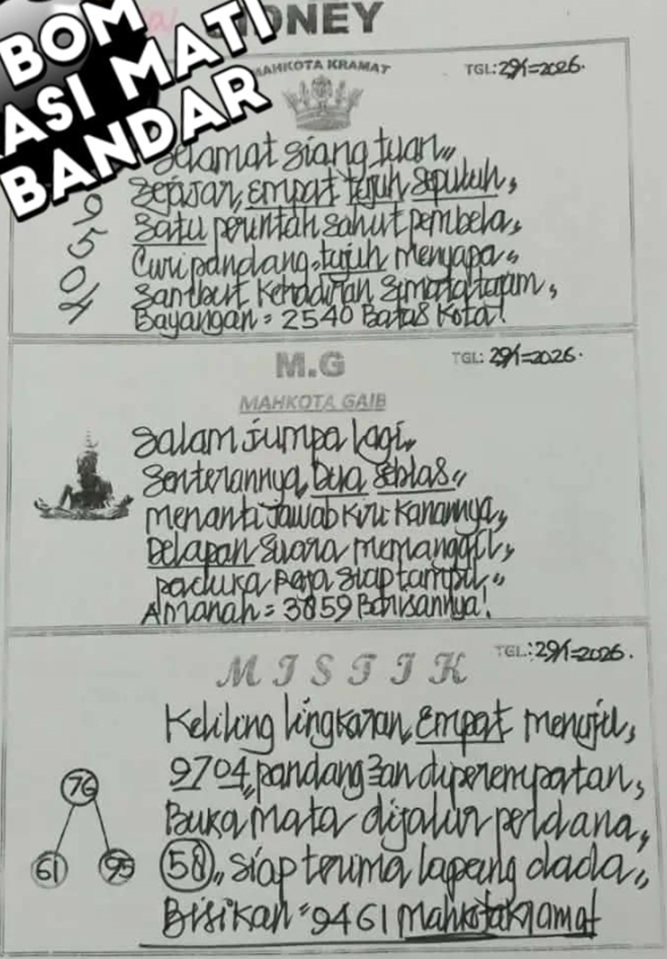 SIDNEY
BOM
ASI MATI
BANDAR
MAHKOTA KRAMAT
TGL: 29/1=2026.
Selamat siang tuan,,
Sejajar, empat tujuh sepuluh,
Satu perintah sahut pembela,
Curi pandang, tujuh menyapa,,
Sambut Kehadiran Simata tajam,
Bayangan = 2540 Batas Kota!
9
5
0
4
M.G
TGL: 29/1=2026.
MAHKOTA GAIB
Salam jumpa lagi,,
Senterannya, Dua Seblas,,
menanti jawab Kiri Kanannya,
Delapan Suara memanggil,
paduka Raja Siap tampil,,
Amanah = 3859 Barisannya!
MISTIK
TGL: 29/1=2026.
Keliling lingkaran, Empat menuju,
9704,, pandangan diperempatan,
Buka mata dijalur perdana,
58,, Siap terima lapang dada,,
Bisikan = 9461 mahkotakramat
76
61 95